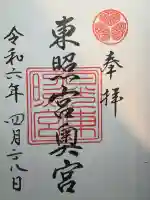 奉拝
東照宮奥宮
令和六年 四月二八日